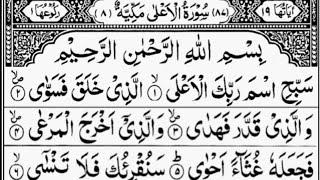 اٰيَاتُهَا ١٩ (٨٧) سُوْرَةُ الْاَعْلٰى مَكِّيَّةٌ (٨) رُكُوْعُهَا ١
بِسْمِ اللهِ الرَّحْمٰنِ الرَّحِيْمِ
سَبِّحِ اسْمَ رَبِّكَ الْاَعْلَى ۙ﴿١﴾ الَّذِيْ خَلَقَ فَسَوّٰى ۙ﴿٢﴾
وَ الَّذِيْ قَدَّرَ فَهَدٰى ۙ﴿٣﴾ وَالَّذِيْٓ اَخْرَجَ الْمَرْعٰى ۙ﴿٤﴾
فَجَعَلَهٗ غُثَآءً اَحْوٰى ؕ﴿٥﴾ سَنُقْرِئُكَ فَلَا تَنْسٰٓى ۙ﴿٦﴾